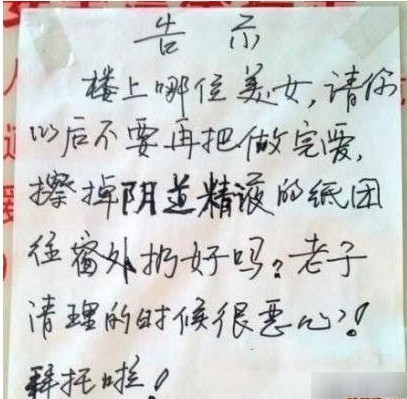 告示
楼上哪位美女,请你
以后不要再把做完爱,
擦掉阴道精液的纸团
往窗外扔好吗?老子
清理的时候很恶心?!
拜托啦!